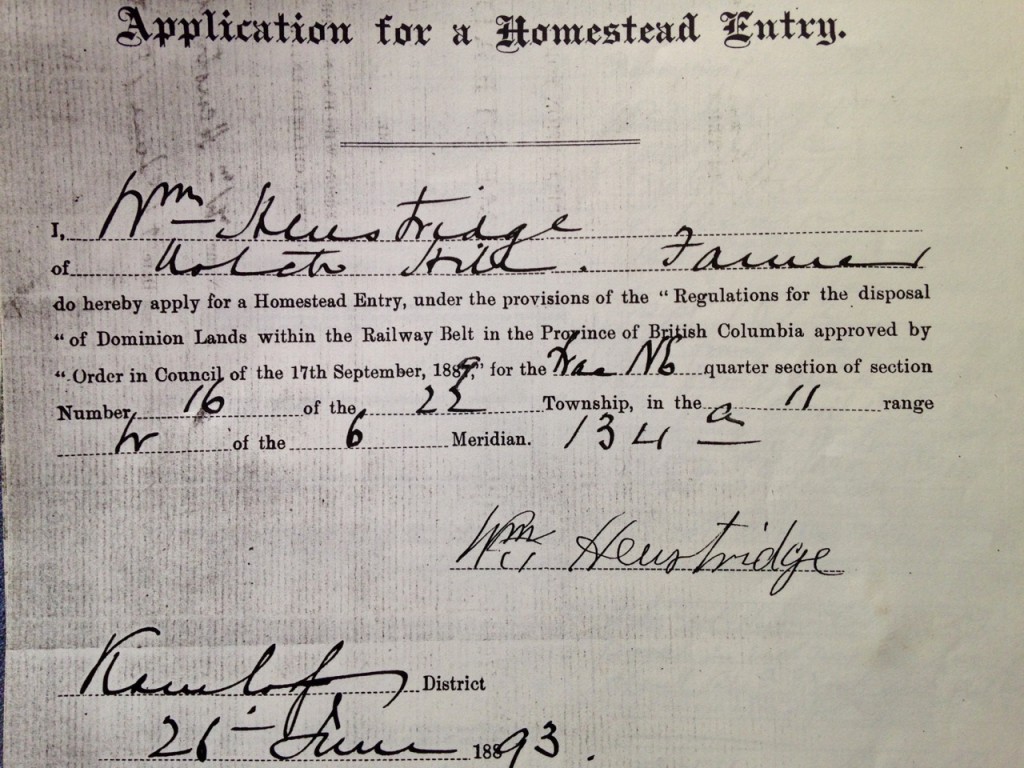 Application for a Homestead Entry.
I, Wm Henstridge
of Notch Hill. Farmer
do hereby apply for a Homestead Entry, under the provisions of the " Regulations for the disposal
" of Dominion Lands within the Railway Belt in the Province of British Columbia approved by
" Order in Council of the 17th September, 1889," for the Frac NE quarter section of section
Number 16 of the 22 Township, in the 11 range
W of the 6 Meridian. 134 a
Wm Henstridge
Kamloops District
26 June 1893.